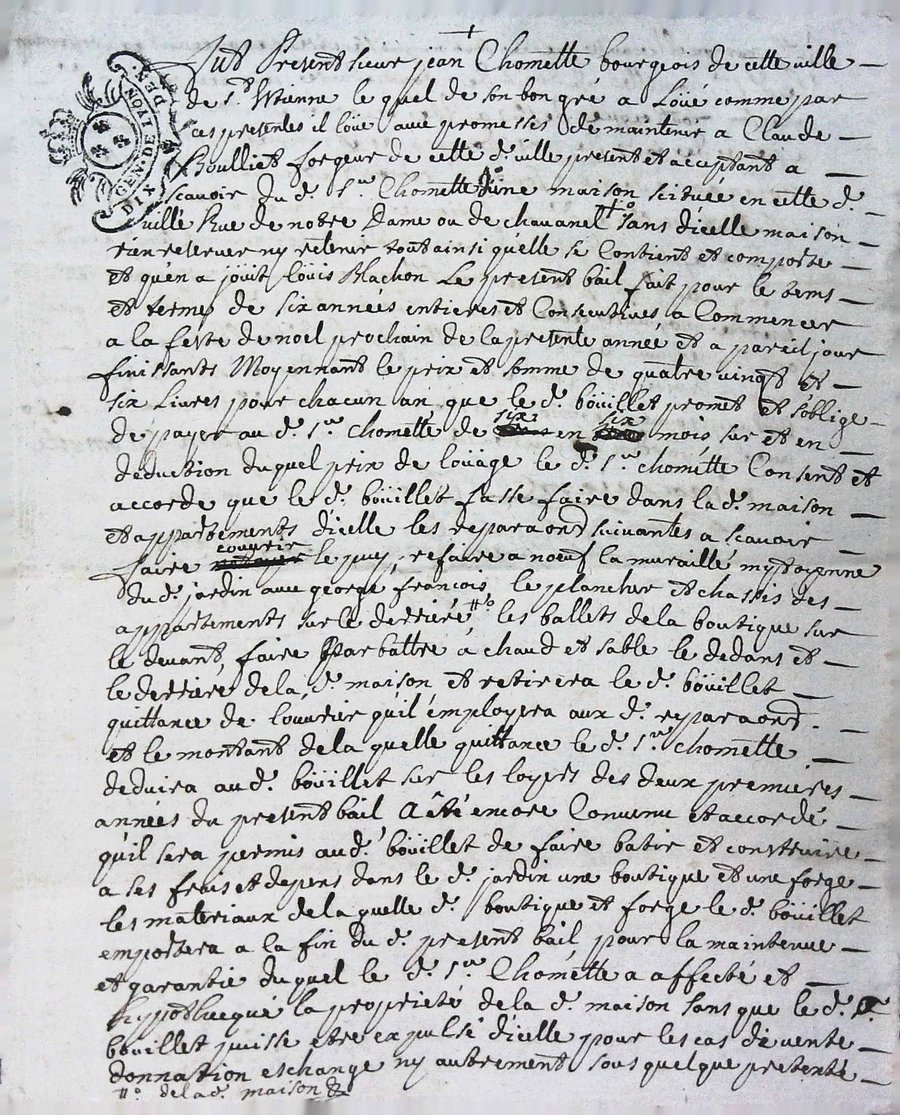 GEN. DE LION DIX DEN
Fut Present sieur jean Chomette bourgeois de cette ville
de St. Etienne le quel de son bon gré a Loüé comme par
ces presentes il loüe avec promesses de maintenir a Claude
Boulliet forgeur de cette d. ville present et acceptant a
scavoir du d. Sr. Chomette d'une maison scituée en cette d.
ville Rue de notre Dame ou de chavanel sans dicelle maison
rien reserver ny retenir tout ainsi quelle se Contient et comporte
et quen a joüit Louis Blachon Le present bail fait pour le tems
et terme de six années entieres et Consecutives a Commencer
a la feste de noel prochain de la presente année et a pareil jour
finissants Moyennant le prix et somme de quatre vingt et
six Livres pour chacun an que le d. boüillet promet et s'oblige
de payer au d. Sr. chomette de six en six mois sur et en
deduction du quel prix de loüage le d. Sr. chomette Consent et
accorde que le d. boüillet fasse faire dans la d. maison
et appartements dicelle les reparaons suivantes a scavoir
faire couvrir le puy, refaire a noeuf la muraille mytoyenne
du d. jardin avec george françois, le plancher et chassis des
appartements sur le derriere #o les ballets de la boutique sur
le devant, faire Parbattre a chaud et sable le dedans et
le derriere de la d. maison et retirera le d. boüillet
quittance de louvrier qu'il employera aux d. reparaons
et le montant de la quelle quittance le d. Sr. chomette
deduira au d. boüillet sur les loyers des deux premieres
années du present bail A été encore Convenu et accordé
qu'il sera permis au d. boüillet de faire batir et construire
a ses frais et depens dans le d. jardin une boutique et une forge
les materiaux de la quelle d. boutique et forge le d. boüillet
emportera a la fin du d. present bail pour la maintenue
et garantie du quel le d. Sr. Chomette a affecté et
hypothequé la proprieté de la d. maison sans que le d.
boüillet puisse etre expulsé dicelle pour les cas de vente
donnation eschange ny autrement sous quelque pretexte
#o de la d. maison &